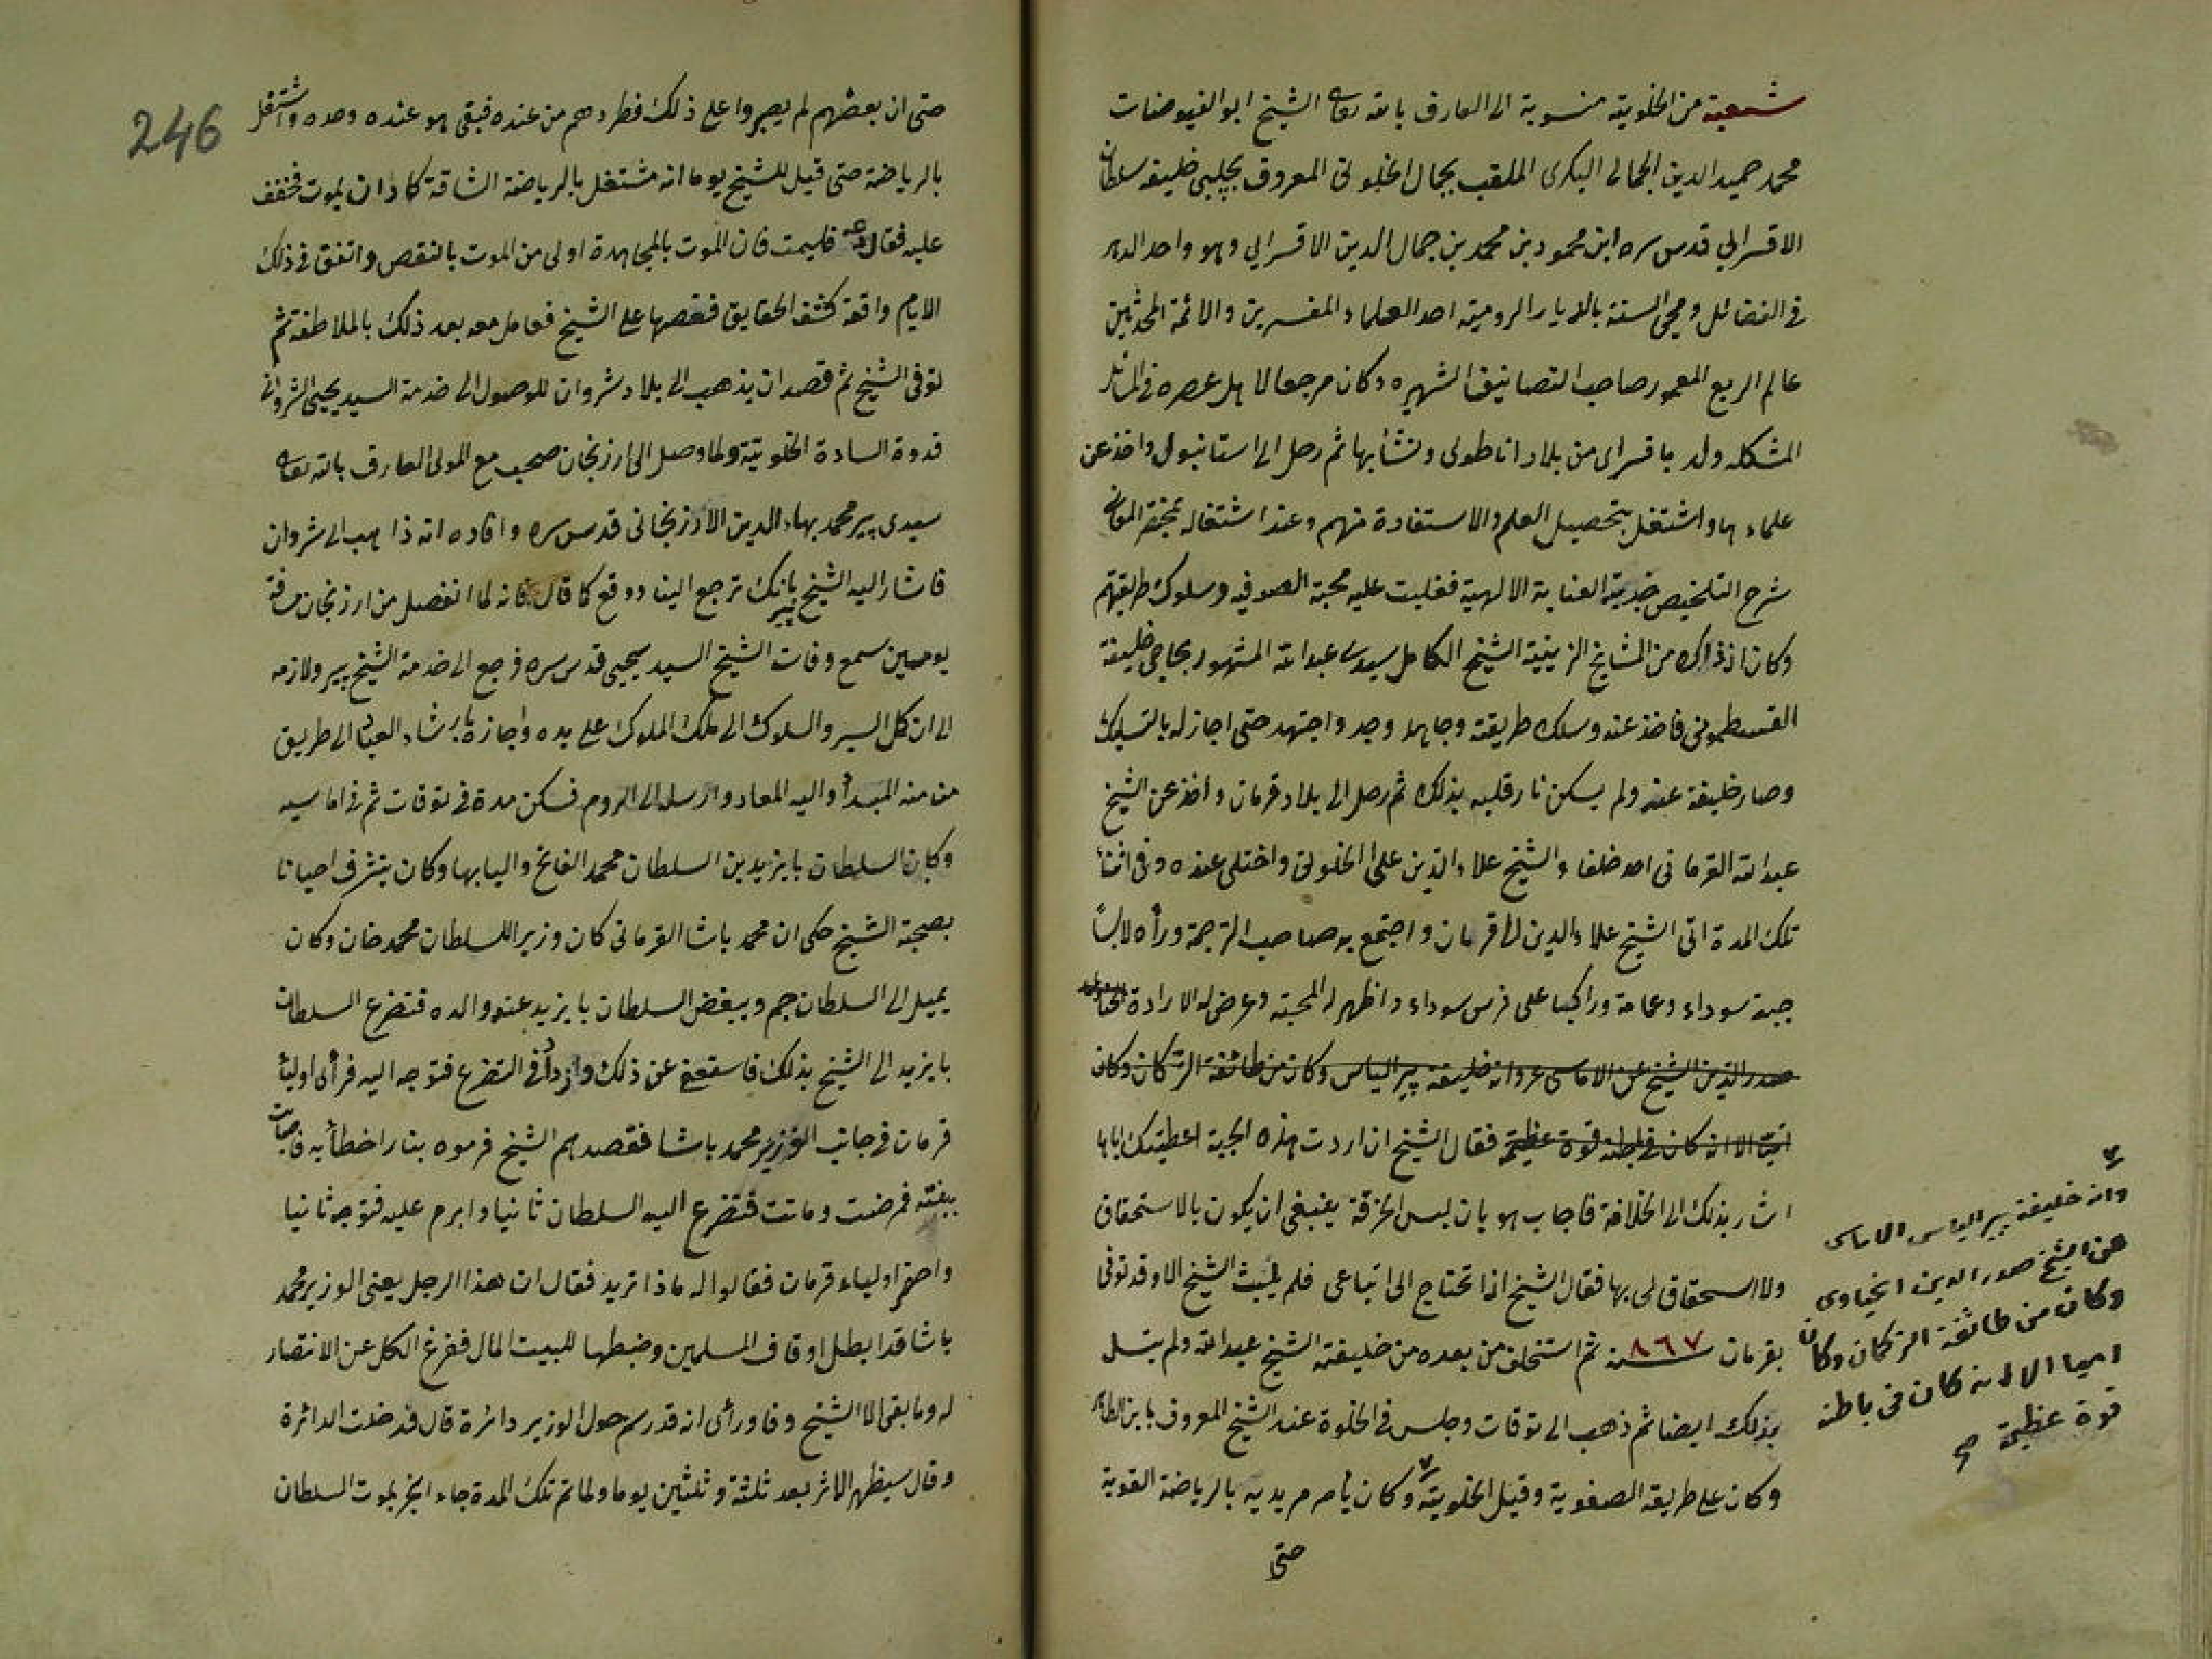 شعبة من الخلوتية منسوبة الى العارف بالله تعالى الشيخ ابو الفيوضات
محمد حميد الدين الجمالى البكرى الملقب بجمال الخلوتى المعروف بچلبى خليفه سلطان
الاقسرايى قدس سره ابن محمود بن محمد بن جمال الدين الاقسرايى وهو واحد الدهر
فى الفضائل ومحى السنة بالديار الرومية احد العلماء المفسرين والائمة المحدثين
عالم الربع المعمور صاحب التصانيف الشهيره وكان مرجعا لاهل عصره فى المسائل
المشكله ولد باقسراى من بلاد اناطولى ونشأ بها ثم رحل الى استانبول واخذ عن
علماءها واشتغل بتحصيل العلم والاستفادة منهم وعند اشتغاله بمختصر المعانى
شرح التلخيص جذبته العناية الالهية فغلبت عليه محبة الصوفيه وسلوك طريقتهم
وكان اذ ذاك من المشايخ الزينية الشيخ الكامل سيدى عبد الله المشهور بحاجى خليفة
القسطمونى فاخذ عنه وسلك طريقته وجاهد وجد واجتهد حتى اجاز له بالتسليك
وصار خليفة عنه ولم يسكن نار قلبه بذلك ثم رحل الى بلاد قرمان واخذ عن الشيخ
عبد الله القرمانى احد خلفاء الشيخ علاء الدين على الخلوتى واختلى عنده وفى اثناء
تلك المدة اتى الشيخ علاء الدين الى قرمان واجتمع به صاحب الترجمة ورأه لابسًا
جبة سوداء وعمامة وراكبا على فرس سوداء واظهر له المحبة وعرض له الارادة
صدر الدين الشيخ عن الاماسى عروانه خليفة پير الياس وكان من طائفة التركمان وكان
اميّا الا انه كان فى باطنه قوة عظيمة فقال الشيخ ان اردت هذه الجبة اعطيتك اياها
اشار بذلك الى الخلافة فاجاب هو بان لبس الخرقة ينبغى ان يكون بالاستحقاق
ولا استحقاق لى بها فقال الشيخ اذا تحتاج الى اتباعى فلم يلبث الشيخ الا وقد توفى
بقرمان سنة ٨٦٧ ثم استخلف من بعده من خليفته الشيخ عبد الله ولم يتسل
بذلك ايضا ثم ذهب الى توقات وجلس فى الخلوة عند الشيخ المعروف بابن الطاهر
وكان على طريقة الصفوية وقيل الخلوتية وكان يأمر مريديه بالرياضة القوية
حتى
وانه خليفة پير الياس الاماسى
عن الشيخ صدر الدين الخياوى
وكان من طائفة التركمان وكان
اميا الا انه كان فى باطنه
قوة عظيمة صح
246
حتى ان بعضهم لم يصبروا على ذلك فطردهم من عنده فبقى هو عنده وحده واشتغل
بالرياضة حتى قيل للشيخ يوما انه مشتغل بالرياضة الشاقة كاد ان يموت فخفف
عليه فقال دعه فليمت فان الموت بالمجاهدة اولى من الموت بالنقص واتفق فى ذلك
الايام واقعة كشف الحقايق فقصها على الشيخ فعامل معه بعد ذلك بالملاطفة ثم
توفى الشيخ ثم قصد ان يذهب الى بلاد شروان للوصول الى خدمة السيد يحيى الشروانى
قدوة السادة الخلوتية ولما وصل الى ارزنجان صحب مع المولى العارف بالله تعالى
سيدى پير محمد بهاء الدين الارزنجانى قدس سره وافاده انه ذاهب الى شروان
فاشار اليه الشيخ پير بانك ترجع الينا ووقع كما قال فانه لما انفصل من ارزنجان مسافة
يومين سمع وفات الشيخ السيد يحيى قدس سره فرجع الى خدمة الشيخ پير ولازمه
الى ان كمل السير والسلوك الى ملك الملوك على يده واجازه بارشاد العباد الى طريق
من منه المبدأ واليه المعاد وارسله الى الروم فسكن مدة فى توقات ثم فى اماسيه
وكان السلطان بايزيد بن السلطان محمد الفاتح واليا بها وكان يتشرف احيانا
بصحبة الشيخ حكى ان محمد باشا القرمانى كان وزيرا للسلطان محمد خان وكان
يميل الى السلطان جم ويبغض السلطان بايزيد عند والده فتضرع السلطان
بايزيد الى الشيخ بذلك فاستعفى عن ذلك وازداد فى التضرع فتوجه اليه فرأى اولياء
قرمان فى جانب الوزير محمد باشا فقصدهم الشيخ فرموه بنار اخطأ به فاصابت
بنته فمرضت وماتت فتضرع اليه السلطان ثانيا وابرم عليه فتوجه ثانيا
واحضر اولياء قرمان فقالوا له ماذا تريد فقال ان هذا الرجل يعنى الوزير محمد
باشا قد ابطل اوقاف المسلمين وضبطها للبيت المال ففرغ الكل عن الانتصار
له وما بقى الا الشيخ وفا ورأى انه قد رسم حول الوزير دائرة قال فدخلت الدائرة
وقال سيظهر الاثر بعد ثلثة وثلثين يوما ولما تم تلك المدة جاء الخبر بموت السلطان